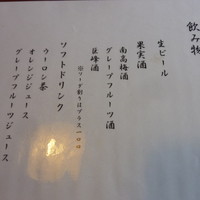 飲み物
生ビール
果実酒
南高梅酒
グレープフルーツ酒
巨峰酒
※ソーダ割りはプラス一〇〇
ソフトドリンク
ウーロン茶
オレンジジュース
グレープフルーツジュース